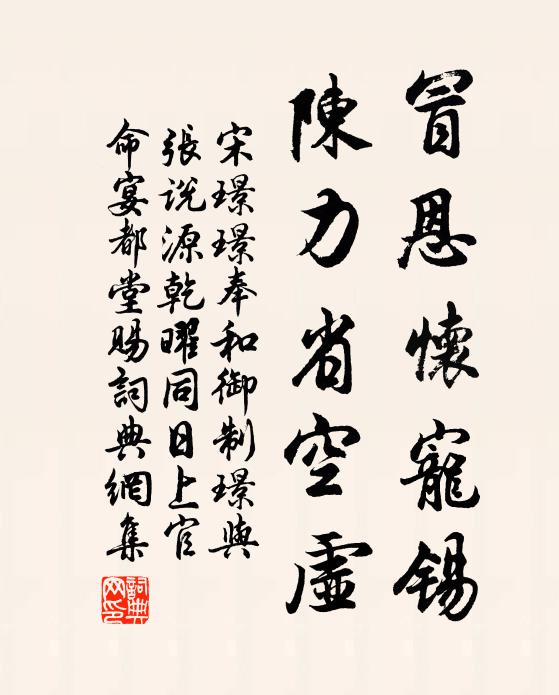 冒恩懷寵錫
陳力省空虛
宋璟璟奉和御制璟與
張说源乾曜同日上官
命宴都堂賜詞典網集
詞典網印